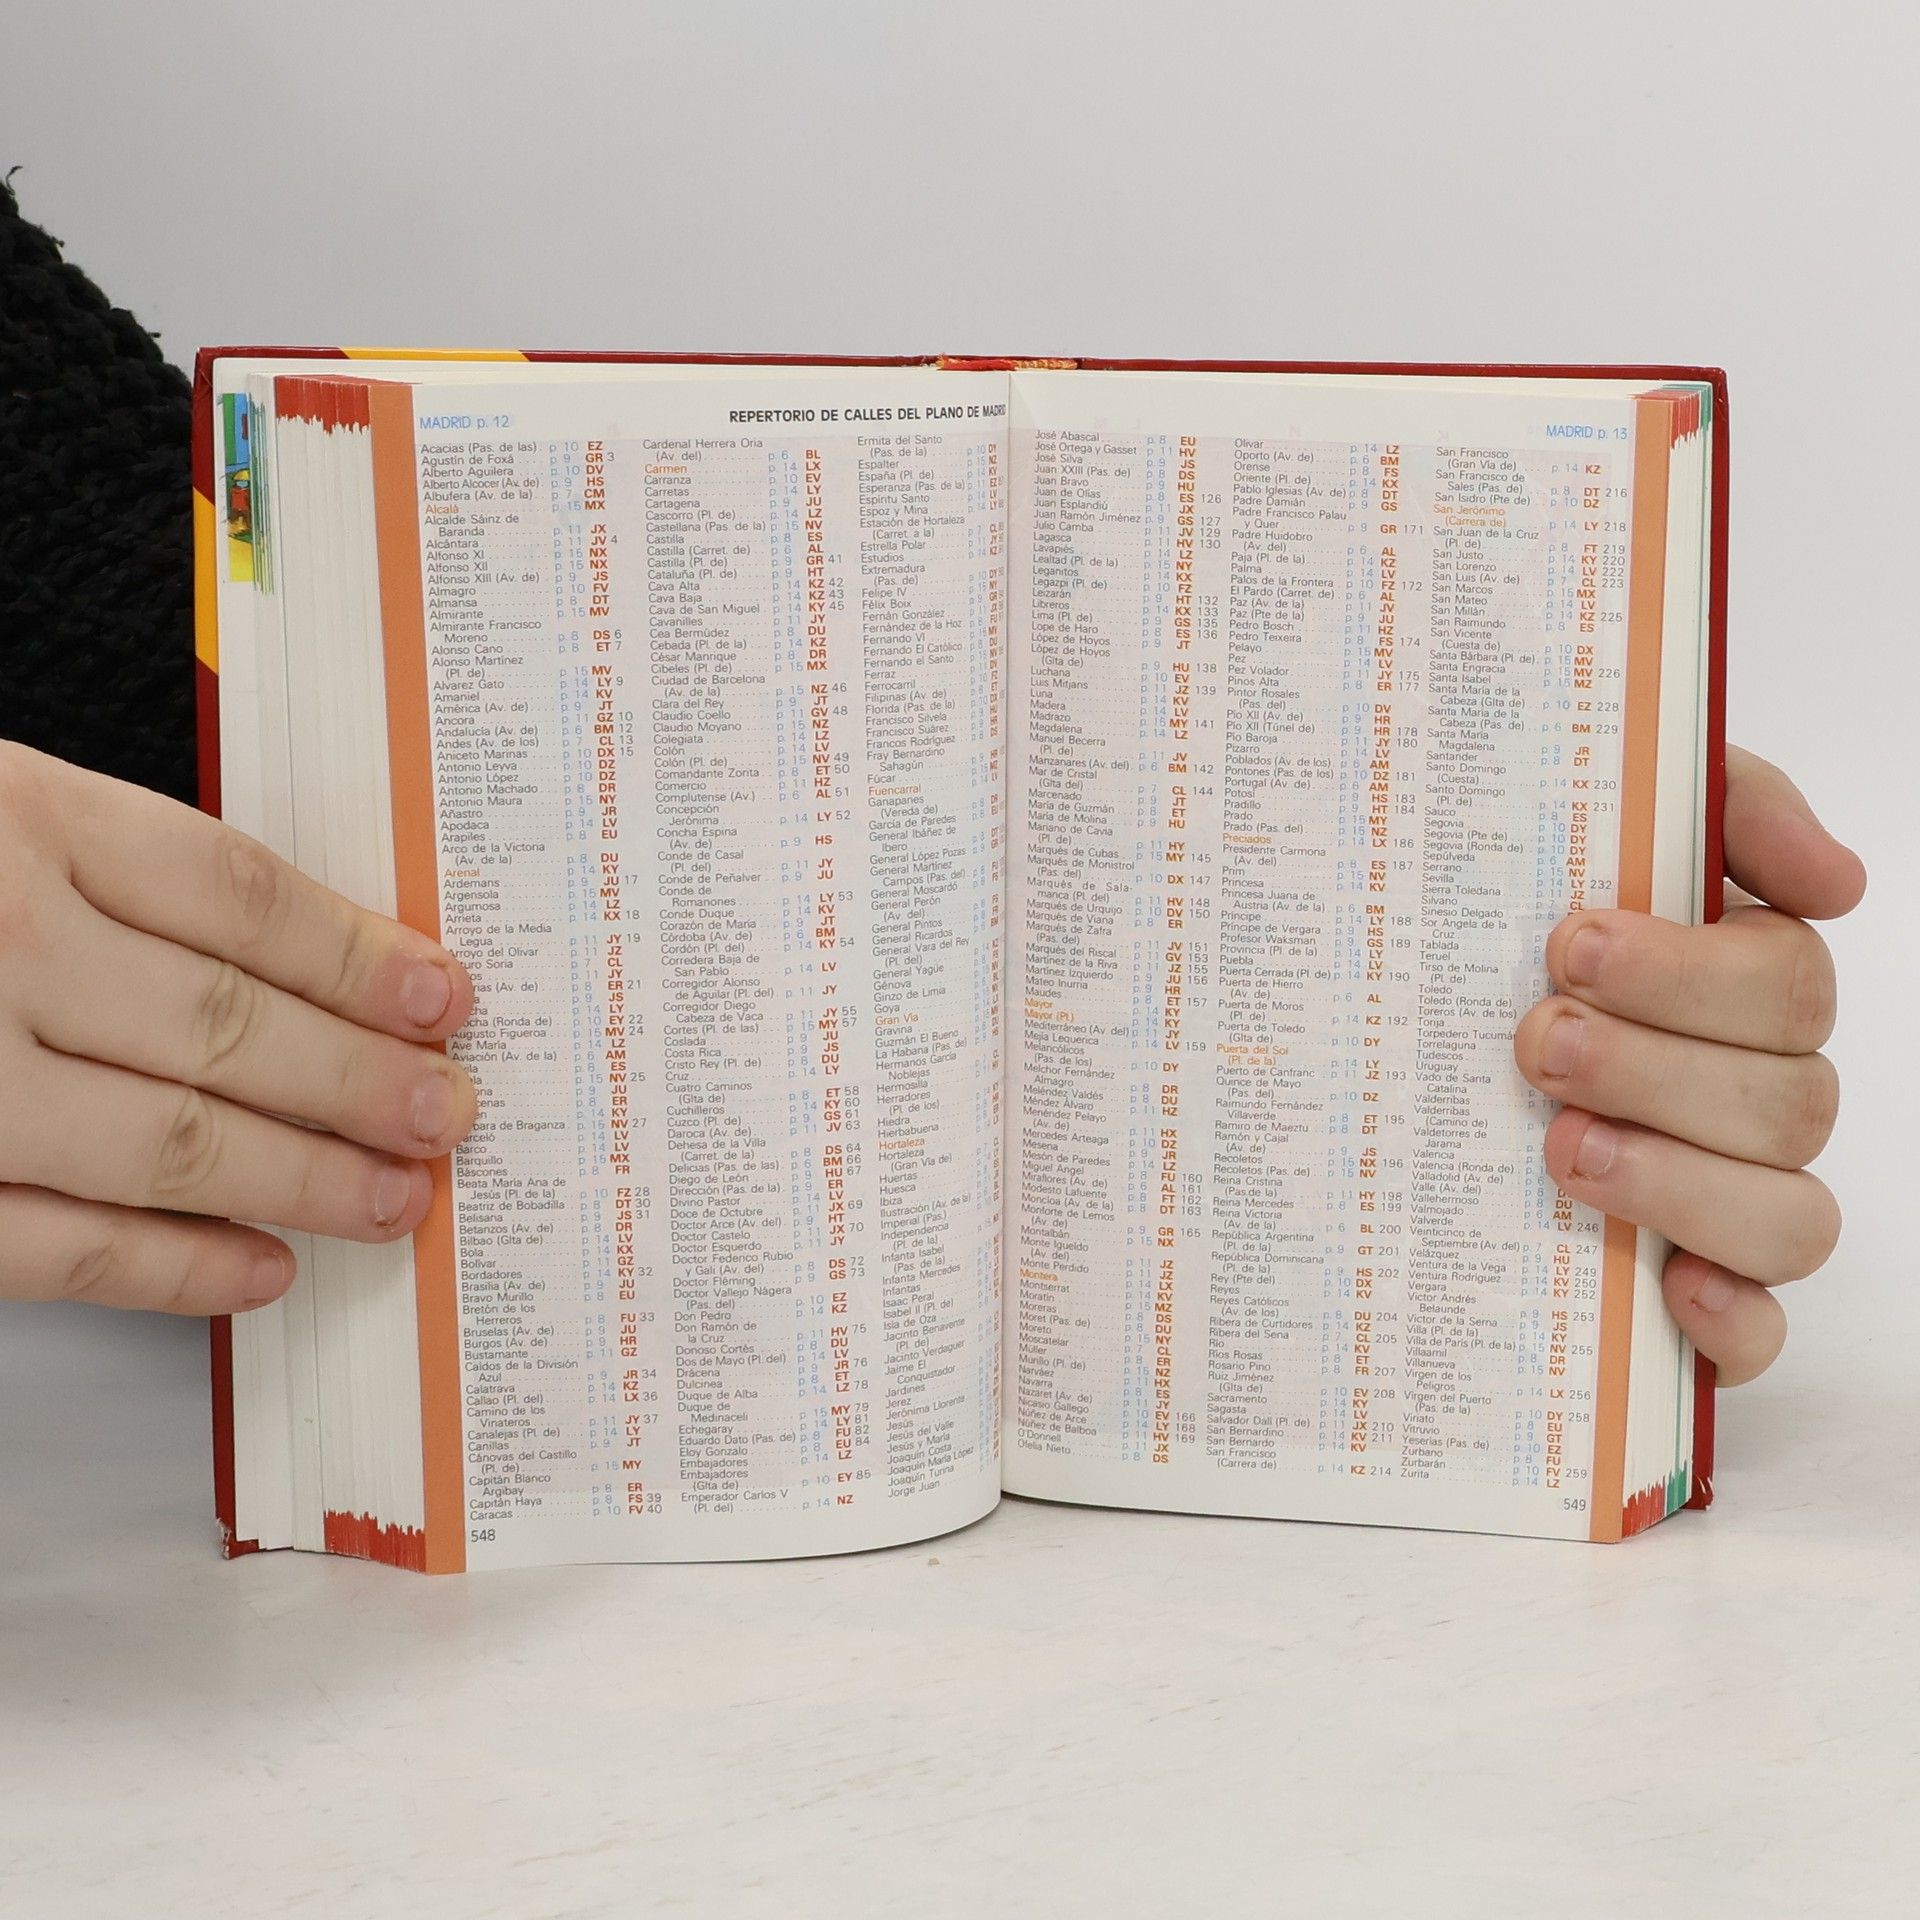 MADRID p. 12
REPERTORIO DE CALLES DEL PLANO DE MADRID
Acacias (Pas. de las) . p 10 EZ
Agustín de Foxá p 9 GR 3
Alberto Aguilera p 10 DV
Alberto Alcocer (Av. de) p 9 HS
Albufera (Av. de la) p 7 CM
Alcalá p 15 MX
Alcalde Sáinz de
Baranda p 11 JX
Alcántara p 11 JV 4
Alfonso XI p 15 NX
Alfonso XII p 15 NX
Alfonso XIII (Av. de) p 9 JS
Almagro p 10 FV
Almansa p 8 DT
Almirante p 15 MV
Almirante Francisco
Moreno p 8 DS 6
Alonso Cano p 8 ET 7
Alonso Martínez
(Pl. de) p 15 MV
Alvarez Gato p 14 LY 9
Amaniel p 14 KV
América (Av. de) p 9 JT
Ancora p 11 GZ 10
Andalucía (Av. de) p 6 BM 12
Andes (Av. de los) p 7 CL 13
Aniceto Marinas p 10 DX 15
Antonio Leyva p 10 DZ
Antonio López p 10 DZ
Antonio Machado p 8 DR
Antonio Maura p 15 NY
Añastro p 9 JR
Apodaca p 14 LV
Arapiles p 8 EU
Arco de la Victoria
(Av. de la) p 8 DU
Arenal p 14 KY
Ardemans p 9 JU 17
Argensola p 15 MV
Argumosa p 14 LZ
Arrieta p 14 KX 18
Arroyo de la Media
Legua p 11 JY 19
Arroyo del Olivar p 11 JZ
Augusto Figueroa p 15 MV 24
Ave María p 14 LZ
Aviación (Av. de la) p 6 AM
Barco p 14 LV
Barquillo p 15 MX
Báscones p 8 FR
Beata María Ana de
Jesús (Pl. de la) p 10 FZ 28
Beatriz de Bobadilla p 8 DT 30
Belisana p 9 JS 31
Betanzos (Av. de) p 8 DR
Bilbao (Glta de) p 14 LV
Bola p 14 KX
Bolívar p 11 GZ
Bordadores p 14 KY 32
Brasilia (Av. de) p 9 JU
Bravo Murillo p 8 EU
Bretón de los
Herreros p 8 FU 33
Bruselas (Av. de) p 9 JU
Burgos (Av. de) p 9 HR
Bustamante p 11 GZ
Caídos de la División
Azul p 9 JR 34
Calatrava p 14 KZ
Callao (Pl. del) p 14 LX 36
Camino de los
Vinateros p 11 JY 37
Canalejas (Pl. de) p 14 LY
Canillas p 9 JT
Cánovas del Castillo
(Pl. de) p 15 MY
Capitán Blanco
Argibay p 8 ER
Capitán Haya p 8 FS 39
Caracas p 10 FV 40
Cardenal Herrera Oria
(Av. del) p 6 BL
Carmen p 14 LX
Carranza p 10 EV
Carretas p 14 LY
Cartagena p 9 JU
Cascorro (Pl. de) p 14 LZ
Castellana (Pas. de la) p 15 NV
Castilla p 8 ES
Castilla (Carret. de) p 6 AL
Castilla (Pl. de) p 9 GR 41
Cataluña (Pl. de) p 9 HT
Cava Alta p 14 KZ 42
Cava Baja p 14 KZ 43
Cava de San Miguel p 14 KY 45
Cavanilles p 11 JY
Cea Bermúdez p 8 DU
Cebada (Pl. de la) p 14 KZ
César Manrique p 8 DR
Cibeles (Pl. de) p 15 MX
Ciudad de Barcelona
(Av. de la) p 15 NZ 46
Clara del Rey p 9 JT
Claudio Coello p 11 GV 48
Claudio Moyano p 15 NZ
Colegiata p 14 LZ
Colón p 14 LV
Colón (Pl. de) p 15 NV 49
Comandante Zorita p 8 ET 50
Comercio p 11 HZ
Complutense (Av.) p 6 AL 51
Concepción
Jerónima p 14 LY 52
Concha Espina
(Av. de) p 9 HS
Conde de Casal
(Pl. del) p 11 JY
Conde de Peñalver p 9 JU
Conde de
Romanones p 14 LY 53
Conde Duque p 14 KV
Corazón de María p 9 JT
Córdoba (Av. de) p 6 BM
Cordón (Pl. del) p 14 KY 54
Corredera Baja de
San Pablo p 14 LV
Corregidor Alonso
de Aguilar (Pl. del) p 11 JY
Corregidor Diego
Cabeza de Vaca p 11 JY 55
Cortes (Pl. de las) p 15 MY 57
Coslada p 9 JU
Costa Rica p 9 JS
Cristo Rey (Pl. de) p 8 DU
Cruz p 14 LY
Cuatro Caminos
(Glta de) p 8 ET 58
Cuchilleros p 14 KY 60
Cuzco (Pl. de) p 9 GS 61
Daroca (Av. de) p 11 JV 63
Dehesa de la Villa
(Carret. de la) p 8 DS 64
Delicias (Pas. de las) p 6 BM 66
Diego de León p 9 HU 67
Dirección (Pas. de la) p 9 ER
Divino Pastor p 14 LV
Doce de Octubre p 11 JX 69
Doctor Arce (Av. del) p 9 HT
Doctor Castelo p 11 JX 70
Doctor Esquerdo p 11 JY
Doctor Federico Rubio
y Galí (Av. del) p 8 DS 72
Doctor Fléming p 9 GS 73
Doctor Vallejo Nágera
(Pas. del) p 10 EZ
Don Pedro p 14 KZ
Don Ramón de
la Cruz p 11 HV 75
Donoso Cortés p 8 DU
Dos de Mayo (Pl. del) p 14 LV
Drácena p 9 JR 76
Dulcinea p 8 ET
Duque de Alba p 14 LZ 78
Duque de
Medinaceli p 15 MY 79
Echegaray p 14 LY 81
Eduardo Dato (Pas. de) p 8 FU 82
Eloy Gonzalo p 8 EU 84
Embajadores p 14 LZ
Embajadores
(Glta de) p 10 EY 85
Emperador Carlos V
(Pl. del) p 14 NZ
Ermita del Santo
(Pas. de la)
Espalter
España (Pl. de)
Esperanza (Pas. de la)
Espíritu Santo
Espoz y Mina
Estación de Hortaleza
(Carret. a la)
Estrella Polar
Estudios
Extremadura
(Pas. de)
Felipe IV
Félix Boix
Fernán González
Fernández de la Hoz
Fernando VI
Fernando El Católico
Fernando el Santo
Ferraz
Ferrocarril
Filipinas (Av. de)
Florida (Pas. de la)
Francisco Silvela
Francisco Suárez
Francos Rodríguez
Fray Bernardino
Sahagún
Fúcar
Fuencarral
Ganapanes
(Vereda de)
García de Paredes
General Ibáñez de
Ibero
General López Pozas
General Martínez
Campos (Pas. del)
General Moscardó
General Perón
(Av. del)
General Pintos
General Ricardos
General Vara del Rey
(Pl. del)
General Yagüe
Génova
Ginzo de Limia
Goya
Gran Vía
Gravina
Guzmán El Bueno
La Habana (Pas. de)
Hermanos García
Noblejas
Hermosilla
Herradores
(Pl. de los)
Hiedra
Hierbabuena
Hortaleza
Hortaleza
(Gran Vía de)
Huertas
Huesca
Ibiza
Ilustración (Av. de la)
Imperial (Pas.)
Independencia
(Pl. de la)
Infanta Isabel
(Pas. de la)
Infanta Mercedes
Infantas
Isaac Peral
Isabel II (Pl. de)
Isla de Oza
Jacinto Benavente
(Pl. de)
Jacinto Verdaguer
Jaime El
Conquistador
Jardines
Jerez
Jerónima Llorente
Jesús
Jesús del Valle
Jesús y María
Joaquín Costa
Joaquín María López
Joaquín Turina
Jorge Juan
548
MADRID p. 13
José Abascal p 8 EU
José Ortega y Gasset p 11 HV
José Silva p 9 JS
Juan XXIII (Pas. de) p 8 DS
Juan Bravo p 9 HU
Juan de Olías p 8 ES 126
Juan Esplandiú p 11 JX
Juan Ramón Jiménez p 9 GS 127
Julio Camba p 11 JV 129
Lagasca p 11 HV 130
Lavapiés p 14 LZ
Lealtad (Pl. de la) p 15 NY
Leganitos p 14 KX
Legazpi (Pl. de) p 10 FZ
Leizarán p 9 HT 132
Libreros p 14 KX 133
Lima (Pl. de) p 9 GS 135
Lope de Haro p 8 ES 136
López de Hoyos p 9 JT
López de Hoyos
(Glta de) p 9 HU 138
Luchana p 10 EV
Luis Mitjans p 11 JZ 139
Luna p 14 KV
Madera p 14 LV
Madrazo p 15 MY 141
Magdalena p 14 LZ
Manuel Becerra
(Pl. de) p 11 JV
Manzanares (Av. del) p 6 BM 142
Mar de Cristal
(Glta del) p 7 CL 144
Marcenado p 9 JT
María de Guzmán p 8 ET
María de Molina p 9 HU
Mariano de Cavia
(Pl. de) p 11 HY
Marqués de Cubas p 15 MY 145
Marqués de Monistrol
(Pas. del) p 10 DX 147
Marqués de Sala-
manca (Pl. del) p 11 HV 148
Marqués de Urquijo p 10 DV 150
Marqués de Viana p 8 ER
Marqués de Zafra
(Pas. del) p 11 JV 151
Marqués del Riscal p 11 GV 153
Martínez de la Riva p 11 JZ 155
Martínez Izquierdo p 9 JU 156
Mateo Inurria p 9 HR
Maudes p 8 ET 157
Mayor p 14 KY
Mayor (Pl.) p 14 KY
Mediterráneo (Av. del) p 11 JY
Mejía Lequerica p 14 LV 159
Melancólicos
(Pas. de los) p 10 DY
Melchor Fernández
Almagro p 8 DR
Meléndez Valdés p 8 DU
Méndez Alvaro p 11 HZ
Menéndez Pelayo
(Av. de) p 11 HX
Mercedes Arteaga p 10 DZ
Mesena p 9 JR
Mesón de Paredes p 14 LZ
Miguel Angel p 8 FU 160
Miraflores (Av. de) p 6 AL 161
Modesto Lafuente p 8 FT 162
Moncloa (Av. de la) p 8 DT 163
Monforte de Lemos
(Av. de) p 9 GR 165
Montalbán p 15 NX
Monte Igueldo
(Av. de) p 11 JZ
Monte Perdido p 11 JZ
Montera p 14 LX
Montserrat p 14 KV
Moratín p 15 MZ
Moreras p 8 DS
Moret (Pas. de) p 8 DU
Moreto p 15 NY
Moscatelar p 7 CL
Müller p 8 ER
Murillo (Pl. de) p 15 NZ
Narváez p 11 HX
Navarra p 8 ES
Nazaret (Av. de) p 11 JY
Nicasio Gallego p 10 EV 166
Núñez de Arce p 14 LY 168
Núñez de Balboa p 11 HV 169
O'Donnell p 11 JX
Ofelia Nieto p 8 DS
Olivar p 14 LZ
Oporto (Av. de) p 6 BM
Orense p 8 FS
Oriente (Pl. de) p 14 KX
Pablo Iglesias (Av. de) p 8 DT
Padre Damián p 9 GS
Padre Francisco Palau
y Quer p 9 GR 171
Padre Huidobro
(Av. del) p 6 AL
Paja (Pl. de la) p 14 KZ
Palma p 14 LV
Palos de la Frontera p 10 FZ 172
El Pardo (Carret. de) p 6 AL
Paz (Av. de la) p 11 JV
Paz (Pte de la) p 9 JU
Pedro Bosch p 11 HZ
Pedro Teixeira p 8 FS 174
Pelayo p 15 MV
Pez p 14 LV
Pez Volador p 11 JY 175
Pinos Alta p 8 ER 177
Pintor Rosales
(Pas. del) p 10 DV
Pío XII (Av. de) p 9 HR
Pío XII (Túnel de) p 9 HR 178
Pío Baroja p 11 JY 180
Pizarro p 14 LV
Poblados (Av. de los) p 6 AM
Pontones (Pas. de los) p 10 DZ 181
Portugal (Av. de) p 6 AM
Potosí p 9 HS 183
Pradillo p 9 HT 184
Prado p 15 MY
Prado (Pas. del) p 15 NZ
Preciados p 14 LX 186
Presidente Carmona
(Av. del) p 8 ES 187
Prim p 15 NV
Princesa p 14 KV
Princesa Juana de
Austria (Av. de la) p 6 BM
Príncipe p 14 LY 188
Príncipe de Vergara p 9 HS
Profesor Waksman p 9 GS 189
Provincia (Pl. de la) p 14 LY
Puebla p 14 LV
Puerta Cerrada (Pl. de) p 14 KY 190
Puerta de Hierro
(Av. de) p 6 AL
Puerta de Moros
(Pl. de) p 14 KZ 192
Puerta de Toledo
(Glta de) p 10 DY
Puerta del Sol
(Pl. de la) p 14 LY
Puerto de Canfranc p 11 JZ 193
Quince de Mayo
(Pas. del) p 10 DZ
Raimundo Fernández
Villaverde p 8 ET 195
Ramiro de Maeztu p 8 DT
Ramón y Cajal
(Av. de) p 9 JS
Recoletos p 15 NX 196
Recoletos (Pas. de) p 15 NV
Reina Cristina
(Pas. de la) p 11 HY 198
Reina Mercedes p 8 ES 199
Reina Victoria
(Av. de la) p 6 BL 200
República Argentina
(Pl. de la) p 9 GT 201
República Dominicana
(Pl. de la) p 9 HS 202
Rey (Pte del) p 10 DX
Reyes p 14 KV
Reyes Católicos
(Av. de los) p 8 DU 204
Ribera de Curtidores p 14 KZ
Ribera del Sena p 7 CL 205
Río p 14 KV
Ríos Rosas p 8 ET
Rosario Pino p 8 FR 207
Ruiz Jiménez
(Glta de) p 10 EV 208
Sacramento p 14 KY
Sagasta p 14 LV
Salvador Dalí (Pl. de) p 11 JX 210
San Bernardino p 14 KV 211
San Bernardo p 14 KV
San Francisco
(Carrera de) p 14 KZ 214
San Francisco
(Gran Vía de) p 14 KZ
San Francisco de
Sales (Pas. de) p 8 DT 216
San Isidro (Pte de) p 10 DZ
San Jerónimo
(Carrera de) p 14 LY 218
San Juan de la Cruz
(Pl. de) p 8 FT 219
San Justo p 14 KY 220
San Lorenzo p 14 LV 222
San Luis (Av. de) p 7 CL 223
San Marcos p 15 MX
San Mateo p 14 LV
San Millán p 14 KZ 225
San Raimundo p 8 ES
San Vicente
(Cuesta de) p 10 DX
Santa Bárbara (Pl. de) p 15 MV
Santa Engracia p 15 MV 226
Santa Isabel p 15 MZ
Santa María de la
Cabeza (Glta de) p 10 EZ 228
Santa María de la
Cabeza (Pas. de) p 6 BM 229
Santa María
Magdalena p 9 JR
Santander p 8 DT
Santo Domingo
(Cuesta) p 14 KX 230
Santo Domingo
(Pl. de) p 14 KX 231
Sauco p 8 ES
Segovia p 10 DY
Segovia (Pte de) p 10 DY
Segovia (Ronda de) p 10 DY
Sepúlveda p 6 AM
Serrano p 15 NV
Sevilla p 14 LY 232
Sierra Toledana p 11 JZ
Silvano p 7 CL
Sinesio Delgado p 8
Sor Angela de la
Cruz
Tablada
Teruel
Tirso de Molina
(Pl. de)
Toledo
Toledo (Ronda de)
Toreros (Av. de los)
Torija
Torpedero Tucumán
Torrelaguna
Tudescos
Uruguay
Vado de Santa
Catalina
Valderribas
Valderribas
(Camino de)
Valdetorres de
Jarama
Valencia
Valencia (Ronda de)
Valladolid (Av. de)
Valle (Av. del)
Vallehermoso p 8 DU
Valmojado p 6 AM
Valverde p 14 LV 246
Veinticinco de
Septiembre (Av. del) p 7 CL 247
Velázquez p 9 HU
Ventura de la Vega p 14 LY 249
Ventura Rodríguez p 14 KV 250
Vergara p 14 KY 252
Víctor Andrés
Belaunde p 9 HS 253
Víctor de la Serna p 9 JS
Villa (Pl. de la) p 14 KY
Villa de París (Pl. de la) p 15 NV 255
Villaamil p 8 DR
Villanueva p 15 NV
Virgen de los
Peligros p 14 LX 256
Virgen del Puerto
(Pas. de la) p 10 DY 258
Viriato p 9 EU
Vitruvio p 9 GT
Yeserías (Pas. de) p 10 EZ
Zurbano p 8 FU
Zurbarán p 10 FV 259
Zurita p 14 LZ
549